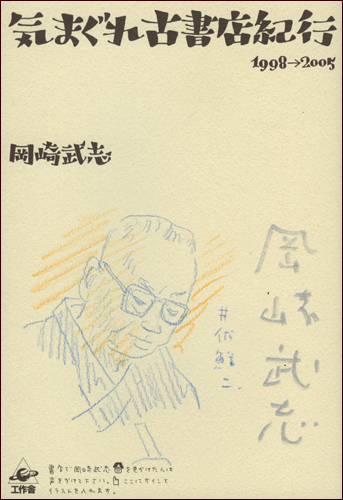 気まぐれ古書店紀行
1998→2005
岡崎武志
岡崎武志
井伏鱒二
で岡崎武志を見かけた人は
声をかけて下さい。ここにサインと
イラストを入れます。
工作舎